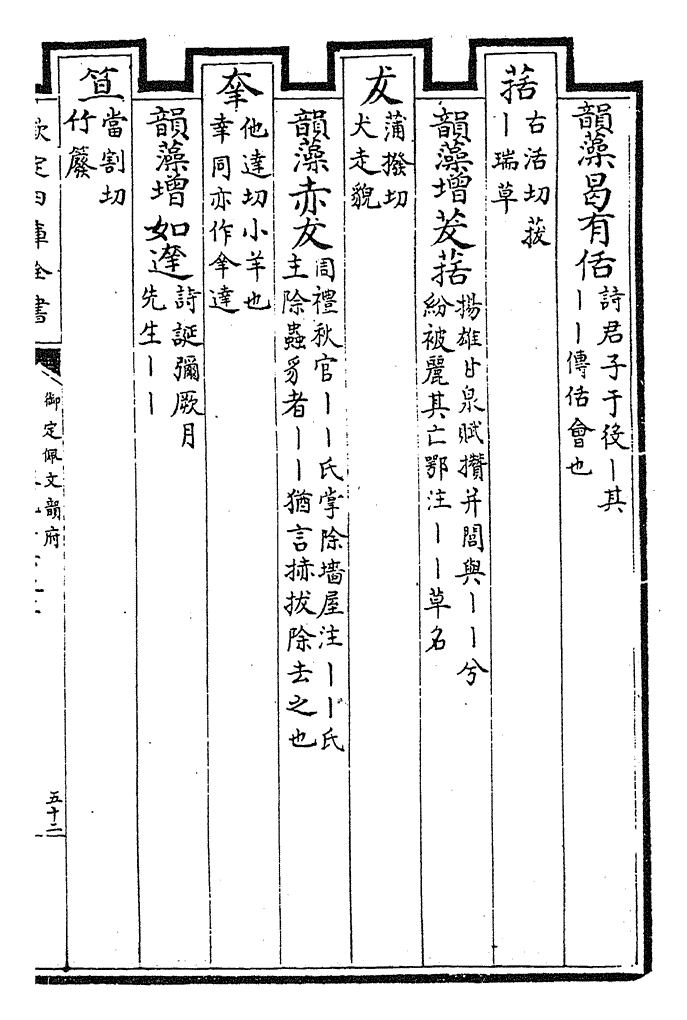 韻藻曷有佸
詩君子于役丨其
丨丨傳佸會也
萿
右活切菝
丨瑞草
韻藻增茇萿
揚雄甘泉賦攢并閭與丨丨兮
紛被麗其亡鄂注丨丨草名
犮
蒲撥切
犬走貌
韻藻赤犮
周禮秋官丨丨氏掌除墻屋注丨丨氏
主除蟲豸者丨丨猶言捇拔除去之也
羍
他達切小羊也
同亦作達
韻藻增如達
詩誕彌厥月
先生丨丨
笪
當割切
竹
欽定四庫全書
御定佩文韻府
五十二